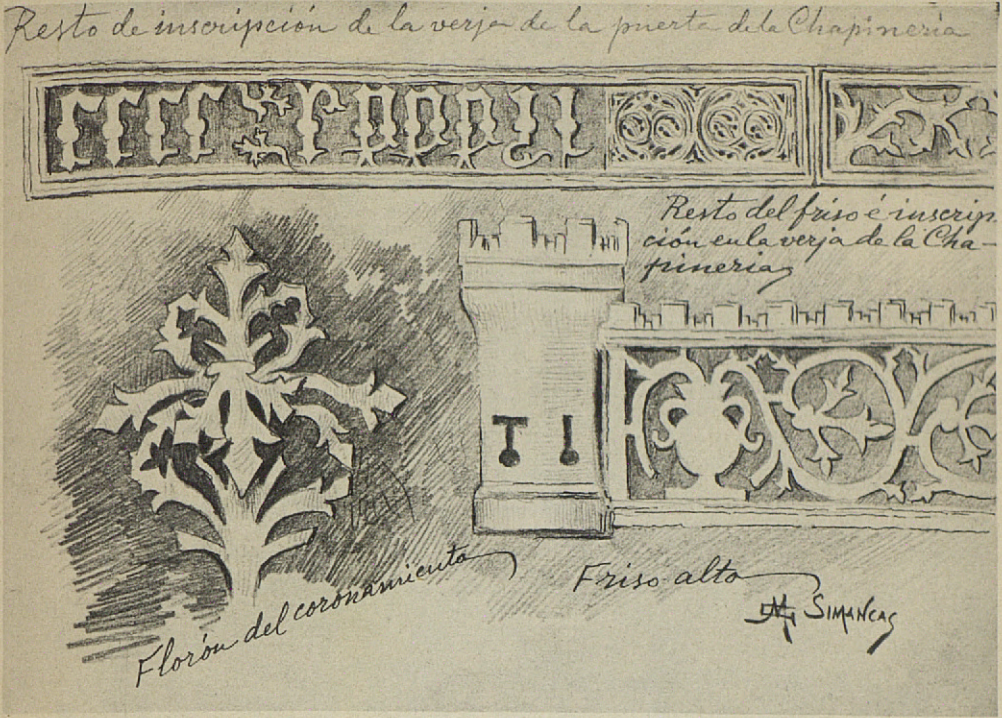 Resto de inscripción de la verja de la puerta de la Chapineria
Resto del friso é inscrip
ción en la verja de la Cha-
pineria
Florón del coronamiento
Friso alto
SIMANCAS